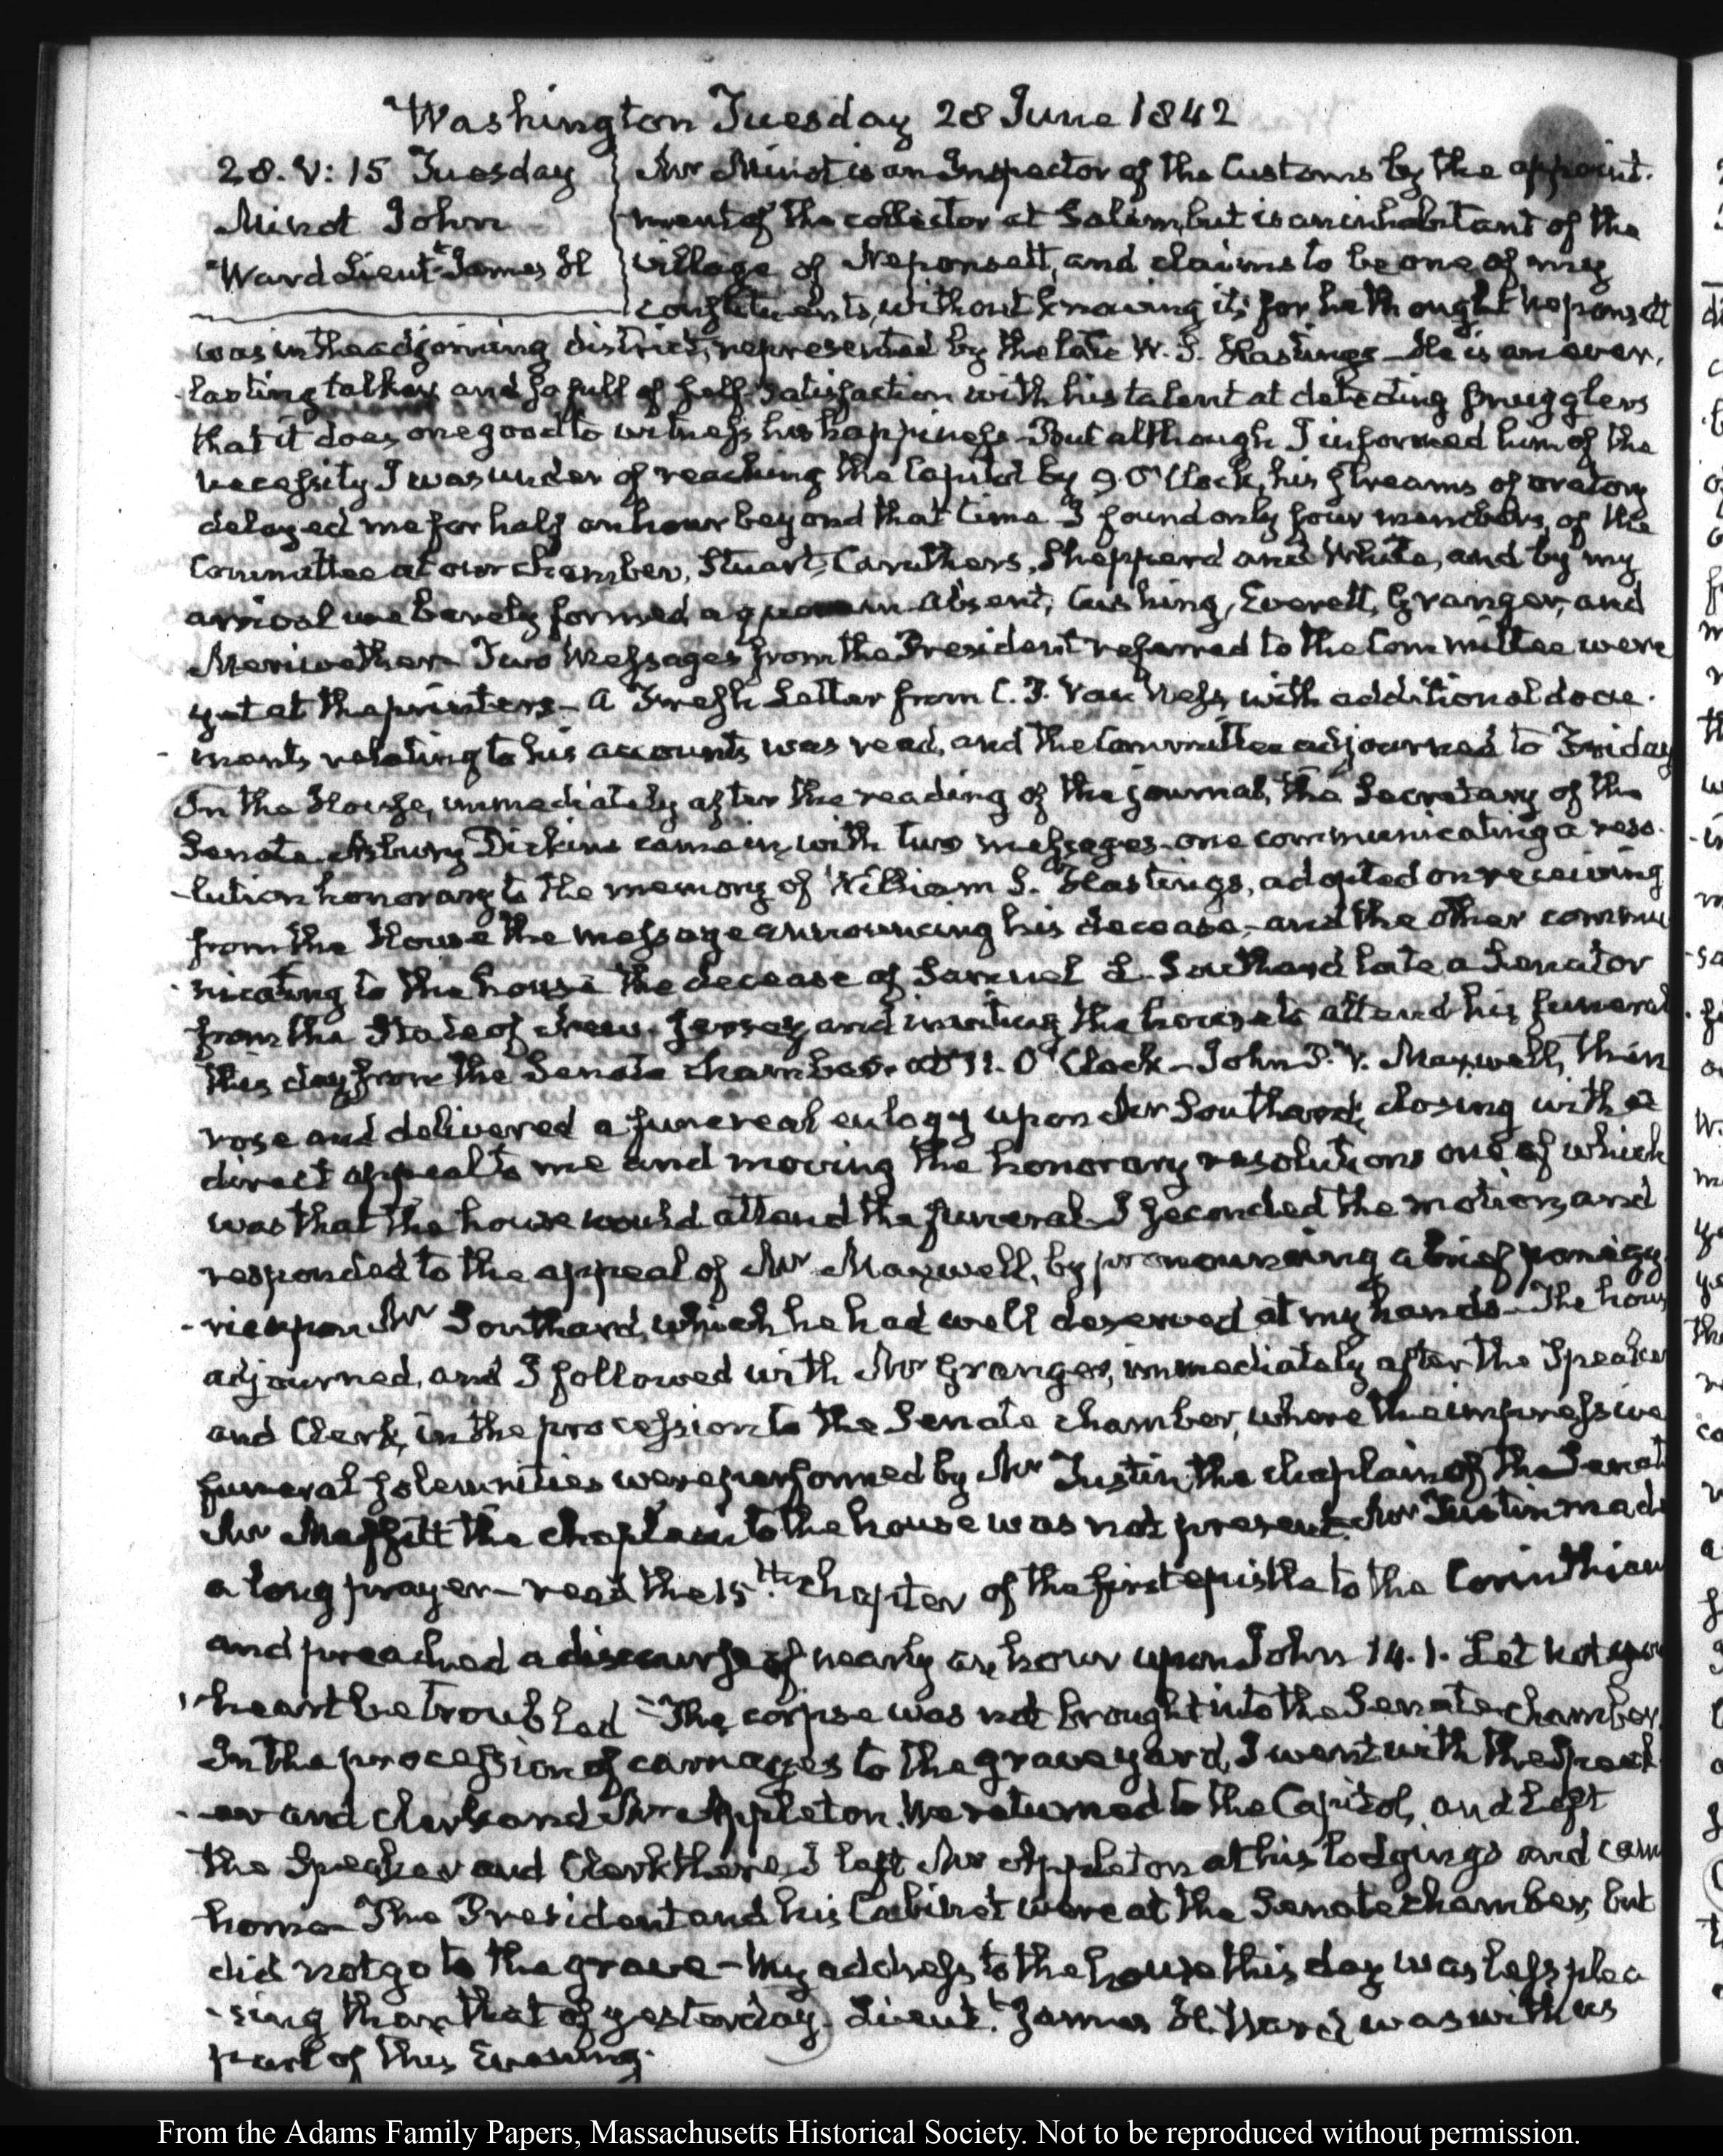 Washington Tuesday 28 June 1842
28. V: 15 Tuesday
Minot John
Ward Lieut.t James H
Mr Minot is an Inspector of the Customs by the appoint-
ment of the collector at Salem, but is an inhabitant of the
village of Neponsett, and claims to be one of my
constituents, without knowing it; for he thought Neponsett
was in the adjoining district, represented by the late W. S. Hastings – He is an ever-
-lasting talker, and so full of self-satisfaction with his talent at detecting smugglers
that it does one good to witness his happiness – But although I informed him of the
necessity I was under of reaching the Capitol by 9. O'Clock, his streams of oratory
delayed me for half an hour beyond that time I found only four members of the
Committee at our chamber, Stuart, Caruthers, Shepperd and White, and by my
arrival we barely formed a quorum absent, Cushing, Everett, Granger, and
Meriwether – Two Messages from the President referred to the Committee were
yet at the printers – A Fresh Letter from C. P. Van Ness with additional docu-
-ments relating to his accounts was read, and the Committee adjourned to Friday
In the House, immediately after the reading of the journal, the Secretary of the
Senate Asbury Dickins came in, with two messages – one communicating a reso-
-lution honorary to the memory of William S. Hastings, adopted on receiving
from the House the message announcing his decease – and the other commu
-nicating to the house the decease of Samuel L. Southard late a Senator
from the State of New-Jersey and inviting the house to attend his funeral
this day from the Senate chamber at 11. O'Clock – John P. B. Maxwell, then
rose and delivered a funereal eulogy upon Mr Southard, closing with a
direct appeal to me and moving the honorary resolutions one of which
was that the house would attend the funeral – I seconded the motion, and
responded to the appeal of Mr Maxwell, by pronouncing a brief panegy-
-ric upon Mr Southard, which he had well deserved at my hands – The hous
adjourned, and I followed with Mr Granger, immediately after the Speaker
and Clerk, in the procession to the Senate chamber, where the impressive
funeral solemnities were performed by Mr Tustin, the chaplain of the Senate
Mr Maffitt the chaplain to the house was not present. Mr Tustin made
a long prayer – read the 15.th chapter of the first epistle to the Corinthian
and preached a discourse of nearly an hour upon John 14. 1. Let not your
heart be troubled – The corpse was not brought into the Senate chamber
In the procession of carriages to the grave yard, I went with the Speak-
-er and Clerk and Mr Appleton. We returned to the Capitol, and left
the Speaker and Clerk there, I left Mr Appleton at his lodgings and came
home – The President and his Cabinet were at the Senate chamber, but
did not go to the grave – My address to the house this day was less plea
-sing than that of yesterday. Lieut.t James H. Ward was with us
part of this Evening.
From the Adams Family Papers, Massachusetts Historical Society. Not to be reproduced without permission.